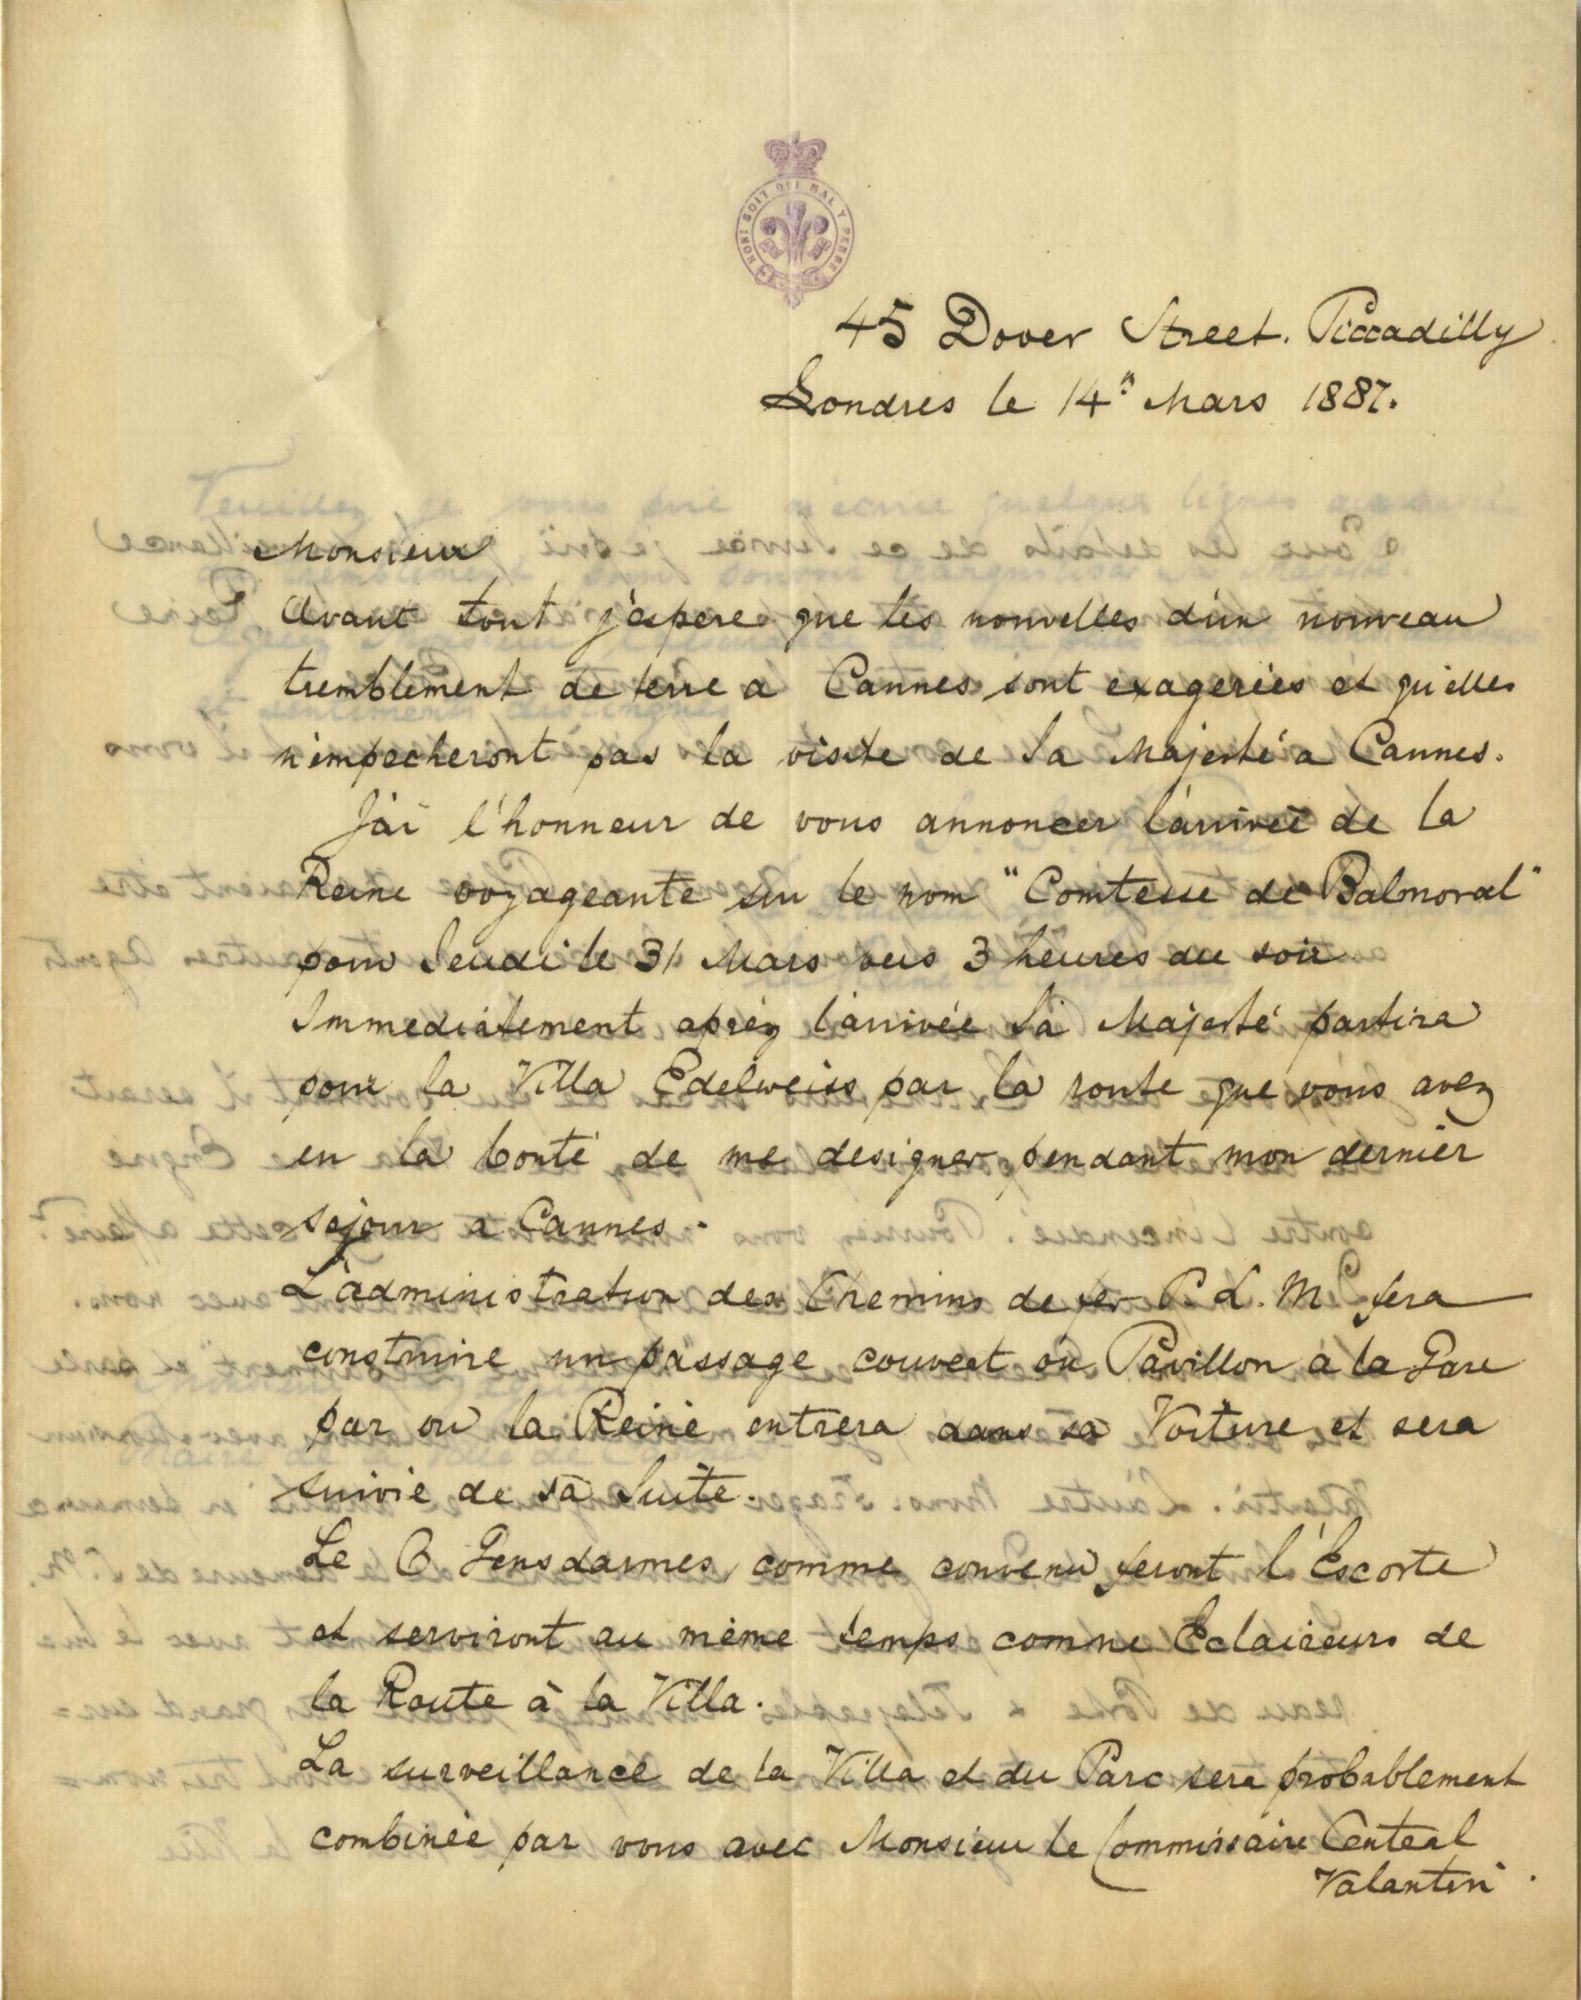 HONI SOIT QUI MAL Y PENSE
45 Dover Street. Piccadilly
Londres le 14" Mars 1887.
Monsieur
Avant tout j'espere que les nouvelles d'un nouveau
tremblement de terre a Cannes sont exagerées et qu'elles
n'empecheront pas la visite de Sa Majesté a Cannes.
J'ai l'honneur de vous annoncer l'arrivée de la
Reine voyageante su le nom "Comtesse de Balmoral"
pour Jeudi le 31 Mars vers 3 heures du soir
Immediatement aprèz l'arrivée Sa Majesté partira
pour la Villa Edelweiss par la route que vous avez
eu la bonté de me designer pendant mon dernier
sejour a Cannes.
L'administration des Chemins de fer P. L. M fera
construire un passage couvert ou Pavillon a la Gare
par ou la Reine entrera dans sa Voiture et sera
suivie de sa Suite.
Le 6 Gensdarmes, comme convenu, feront l'Escorte
et serviront au même temps comme Eclaireurs de
la Route à la Villa.
La surveillance de la Villa et du Parc sera probablement
combinée par vous avec Monsieur le Commissaire Central
Valantin.